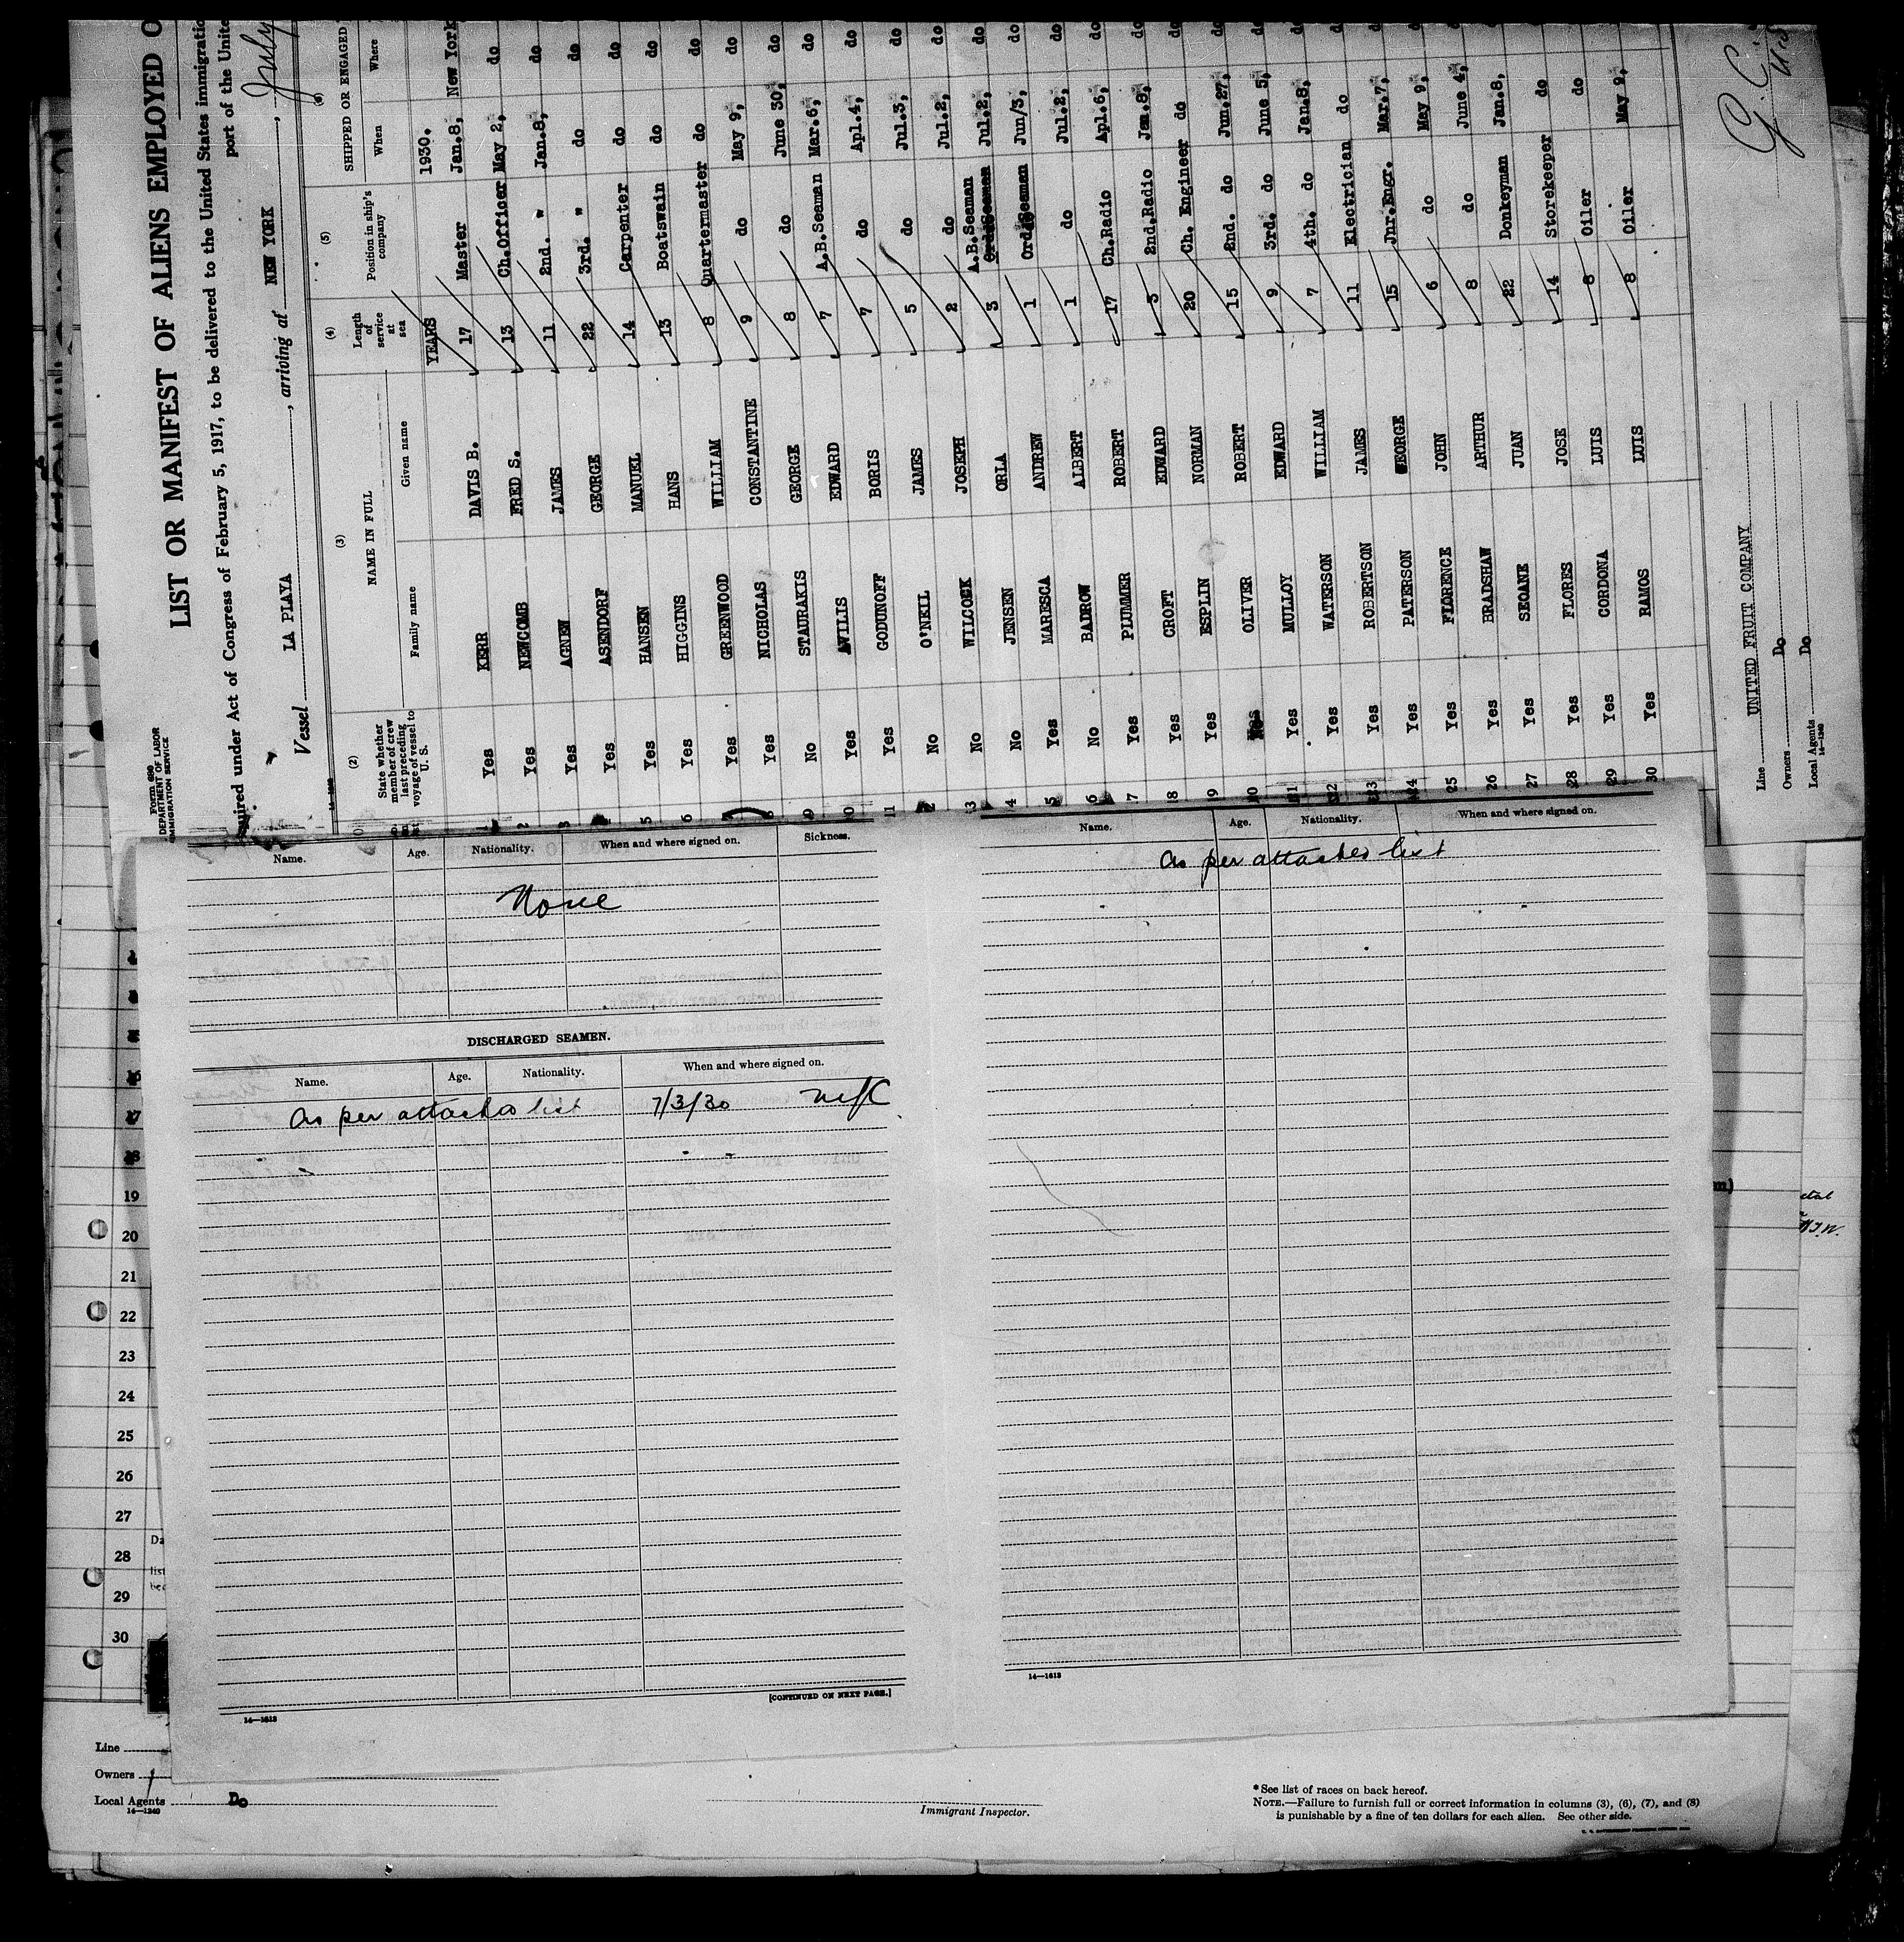 LIST OR MANIFEST OF ALIENS EMPLOYED O
uired under Act of Congress of February 5, 1917, to be delivered to the United States immigratio
port of the Unite
Vessel LA PLAYA, arriving at NEW YORK, July
Form 680
DEPARTMENT OF LABOR
IMMIGRATION SERVICE
(2) (3) (4) (5) (6)
State whether member of crew last preceding voyage of vessel to U. S. NAME IN FULL Length of service at sea Position in ship's company SHIPPED OR ENGAGED
Family name Given name When Where
YEARS 1930.
Yes KERR DAVIS B. 17 Master Jan.8, New York
2 Yes NEWCOMB FRED S. 13 Ch.Officer May 2, do
3 Yes AGNEW JAMES 11 2nd. " Jan.8, do
Yes ASENDORF GEORGE 22 3rd. " do do
5 Yes HANSEN MANUEL 14 Carpenter do do
6 Yes HIGGINS HANS 13 Boatswain do do
Yes GREENWOOD WILLIAM 8 Quartermaster do do
8 Yes NICHOLAS CONSTANTINE 9 do May 9, do
9 No STAURAKIS GEORGE 8 do June 30, do
0 Yes AVILIS EDWARD 7 A.B.Seaman Mar.6, do
11 Yes GODUNOFF BORIS 7 do Apl.4, do
2 No O'NEIL JAMES 5 do Jul.3, do
3 No WILCOCK JOSEPH 2 do Jul.2, do
4 No JENSEN ORLA 3 A.B.Seaman Jul.2, do
5 Yes MARESCA ANDREW 1 Ord.Seaman Jun/3, do
6 No BADROW ALBERT 1 do Jul.2, do
7 Yes PLUMMER ROBERT 17 Ch.Radio Apl.6, do
8 Yes CROFT EDWARD 3 2nd.Radio Jan.8, do
9 Yes ESPLIN NORMAN 20 Ch. Engineer do do
0 OLIVER ROBERT 15 2nd. do Jun.27, do
21 Yes MULLOY EDWARD 9 3rd. do June 5, do
22 Yes WATERSON WILLIAM 7 4th. do Jan.8, do
23 Yes ROBERTSON JAMES 11 Electrician do do
24 Yes PATERSON GEORGE 15 Jnr.Engr. Mar.7, do
25 Yes FLORENCE JOHN 6 do May 9, do
26 Yes BRADSHAW ARTHUR 8 do June 4, do
27 Yes SEOANE JUAN 22 Donkeyman Jan.8, do
28 Yes FLORES JOSE 14 Storekeeper do do
29 Yes CORDONA LUIS 8 Oiler do
30 Yes RAMOS LUIS 8 Oiler May 9, do
Line UNITED FRUIT COMPANY
Owners Do
Local Agents Do
14-1240
Name. Age. Nationality. When and where signed on. Sickness.
None
DISCHARGED SEAMEN.
Name. Age. Nationality. When and where signed on.
As per attached list 7/3/30
[CONTINUED ON NEXT PAGE.]
14—1613
Name. Age. Nationality. When and where signed on.
As per attached list
14—1613
16
17
18
19
20
21
22
23
24
25
26
27
28
29
30
Line
Owners
Local Agents Do
14—1240
Immigrant Inspector.
*See list of races on back hereof.
NOTE.—Failure to furnish full or correct information in columns (3), (6), (7), and (8)
is punishable by a fine of ten dollars for each alien. See other side.